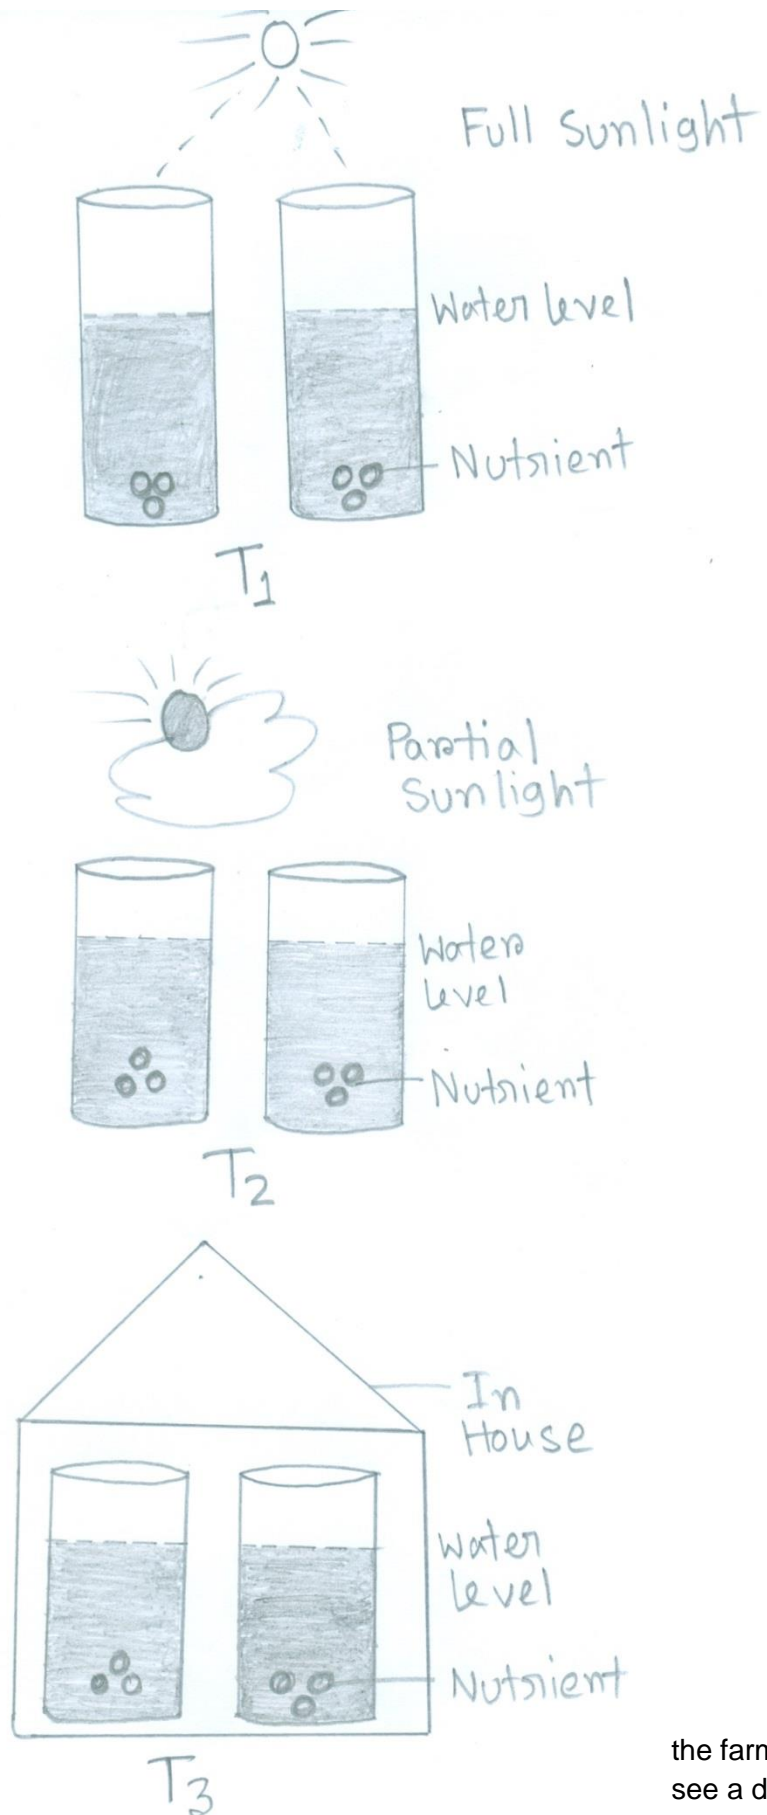 Full Sunlight
Water level
Nutrient
T1
Partial
Sunlight
Water
level
Nutrient
T2
In
House
Water
level
Nutrient
T3
the farm
see a d